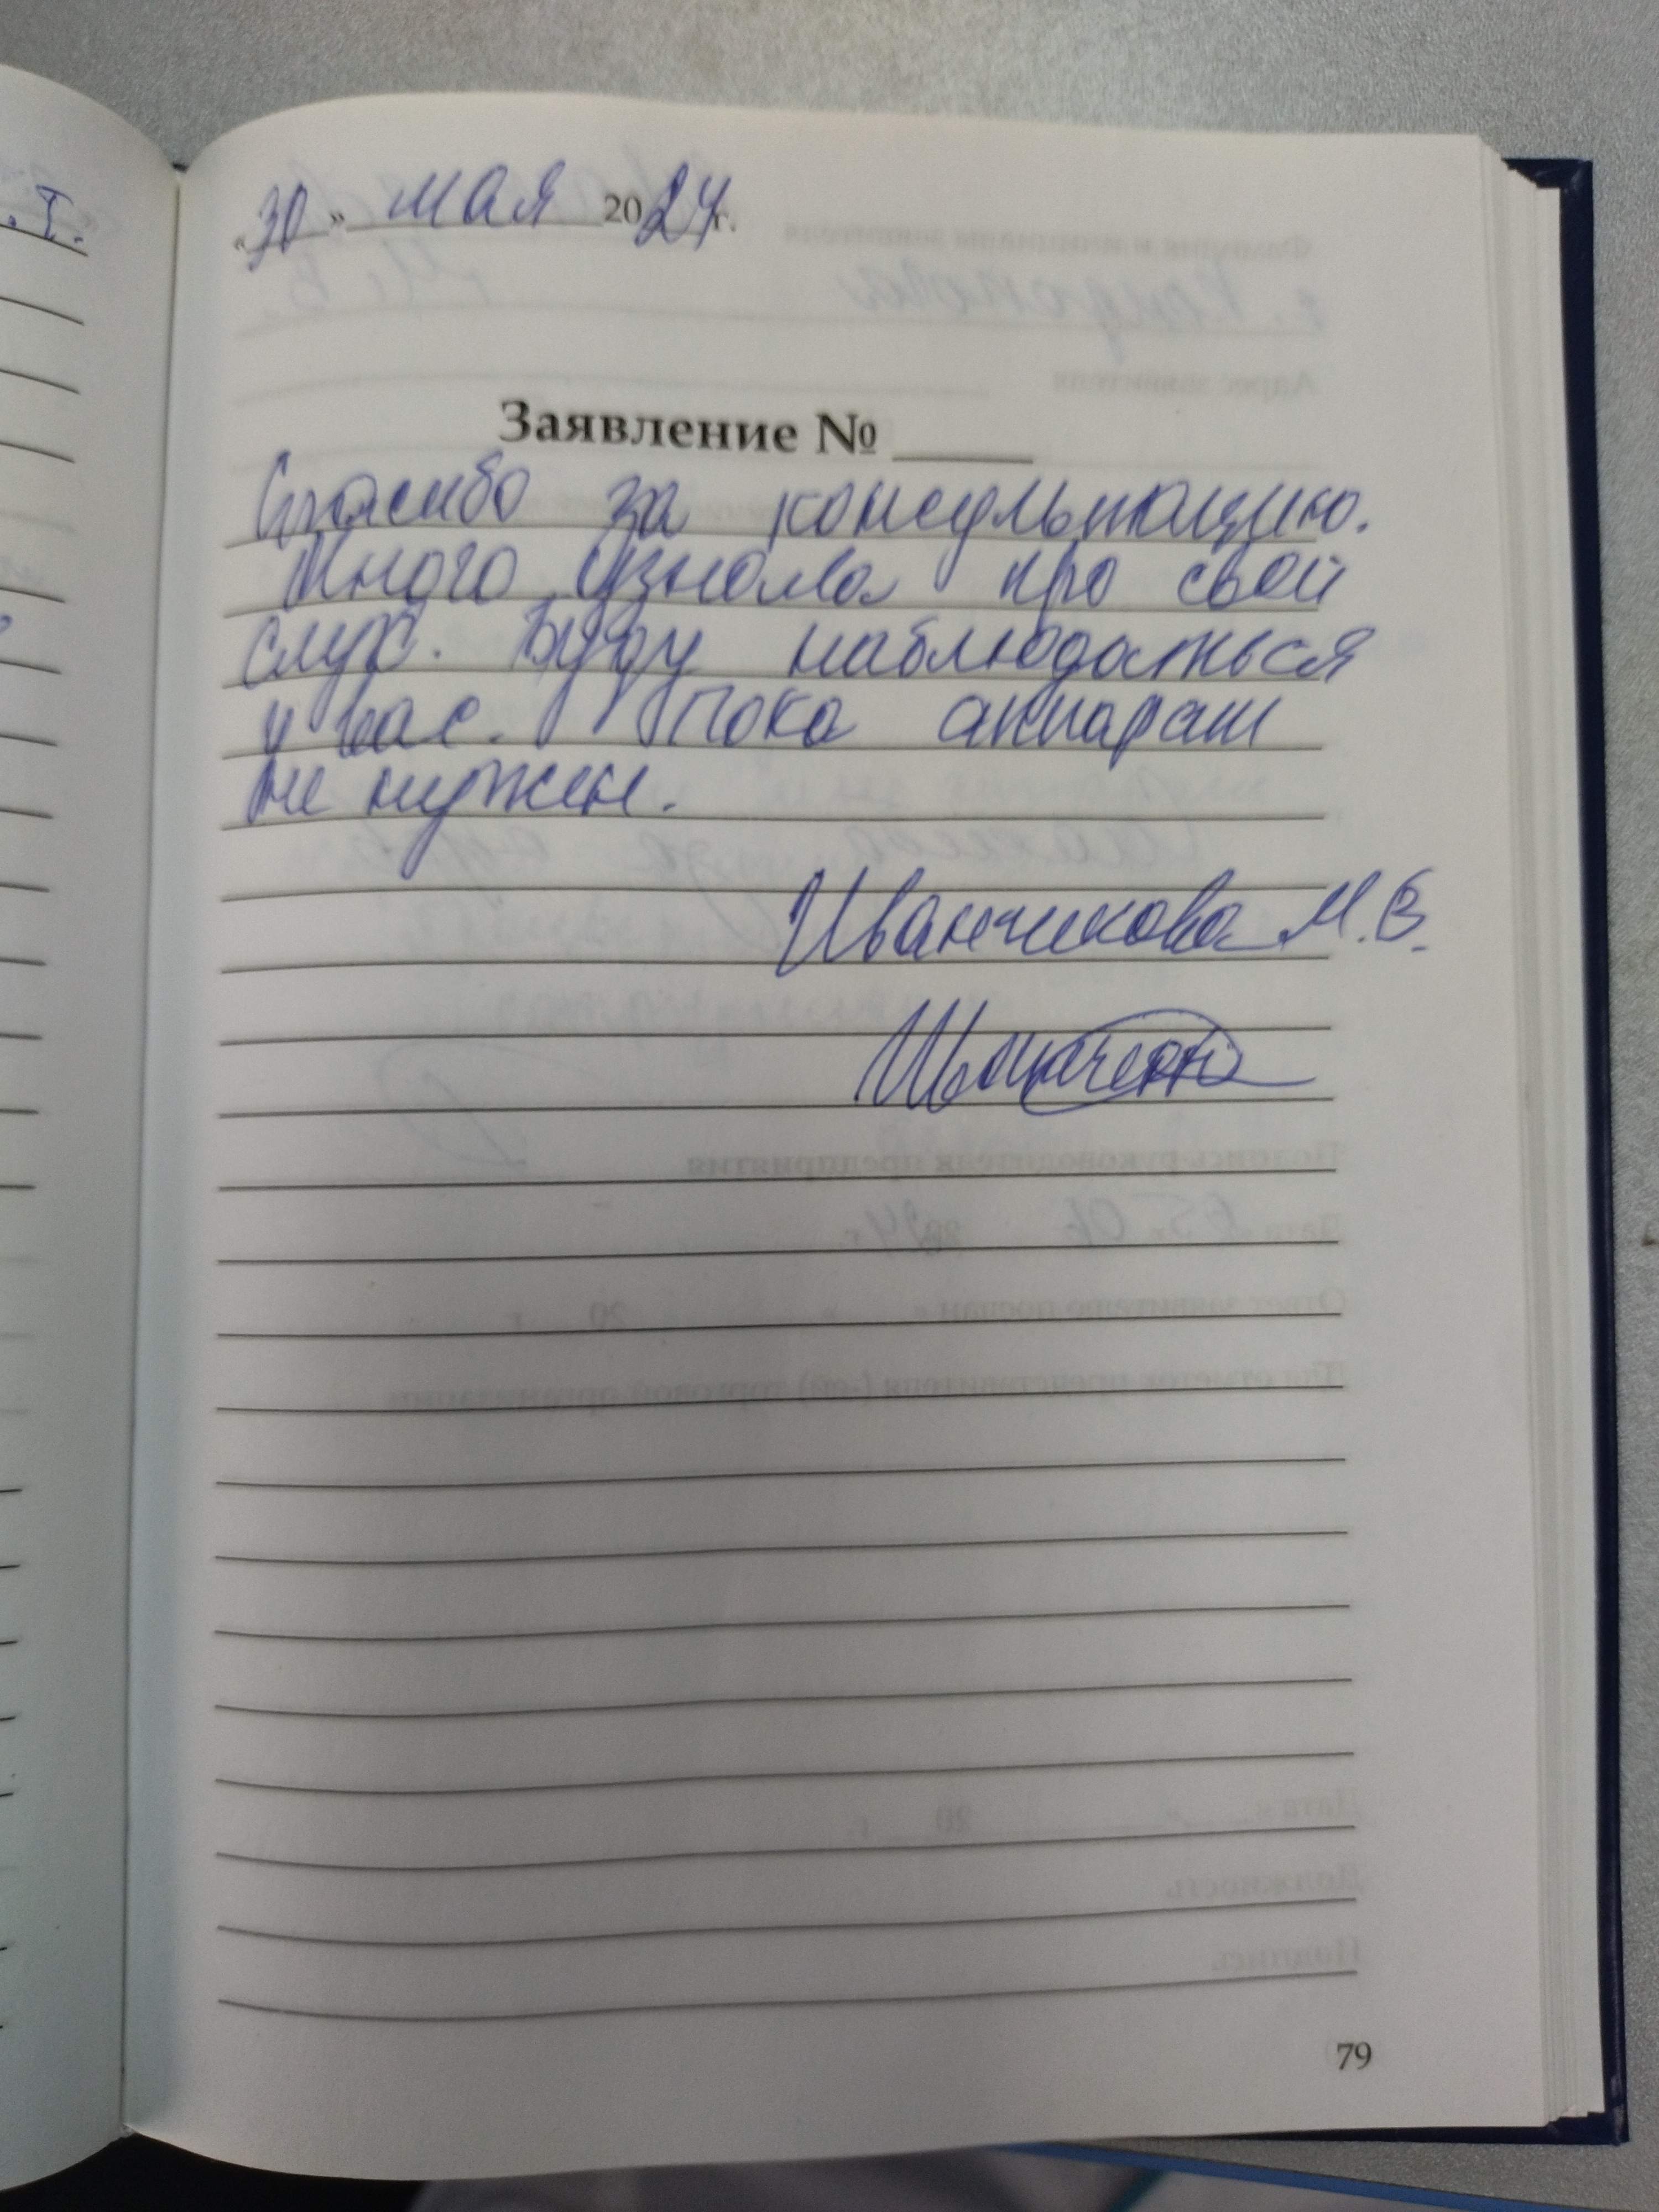 «30» мая 2024 г.
Заявление №
Спасибо за консультацию.
Много узнала про свой
слух. Буду наблюдаться
у вас. Пока аппарат
не нужен.
Иванчикова М.В.
79